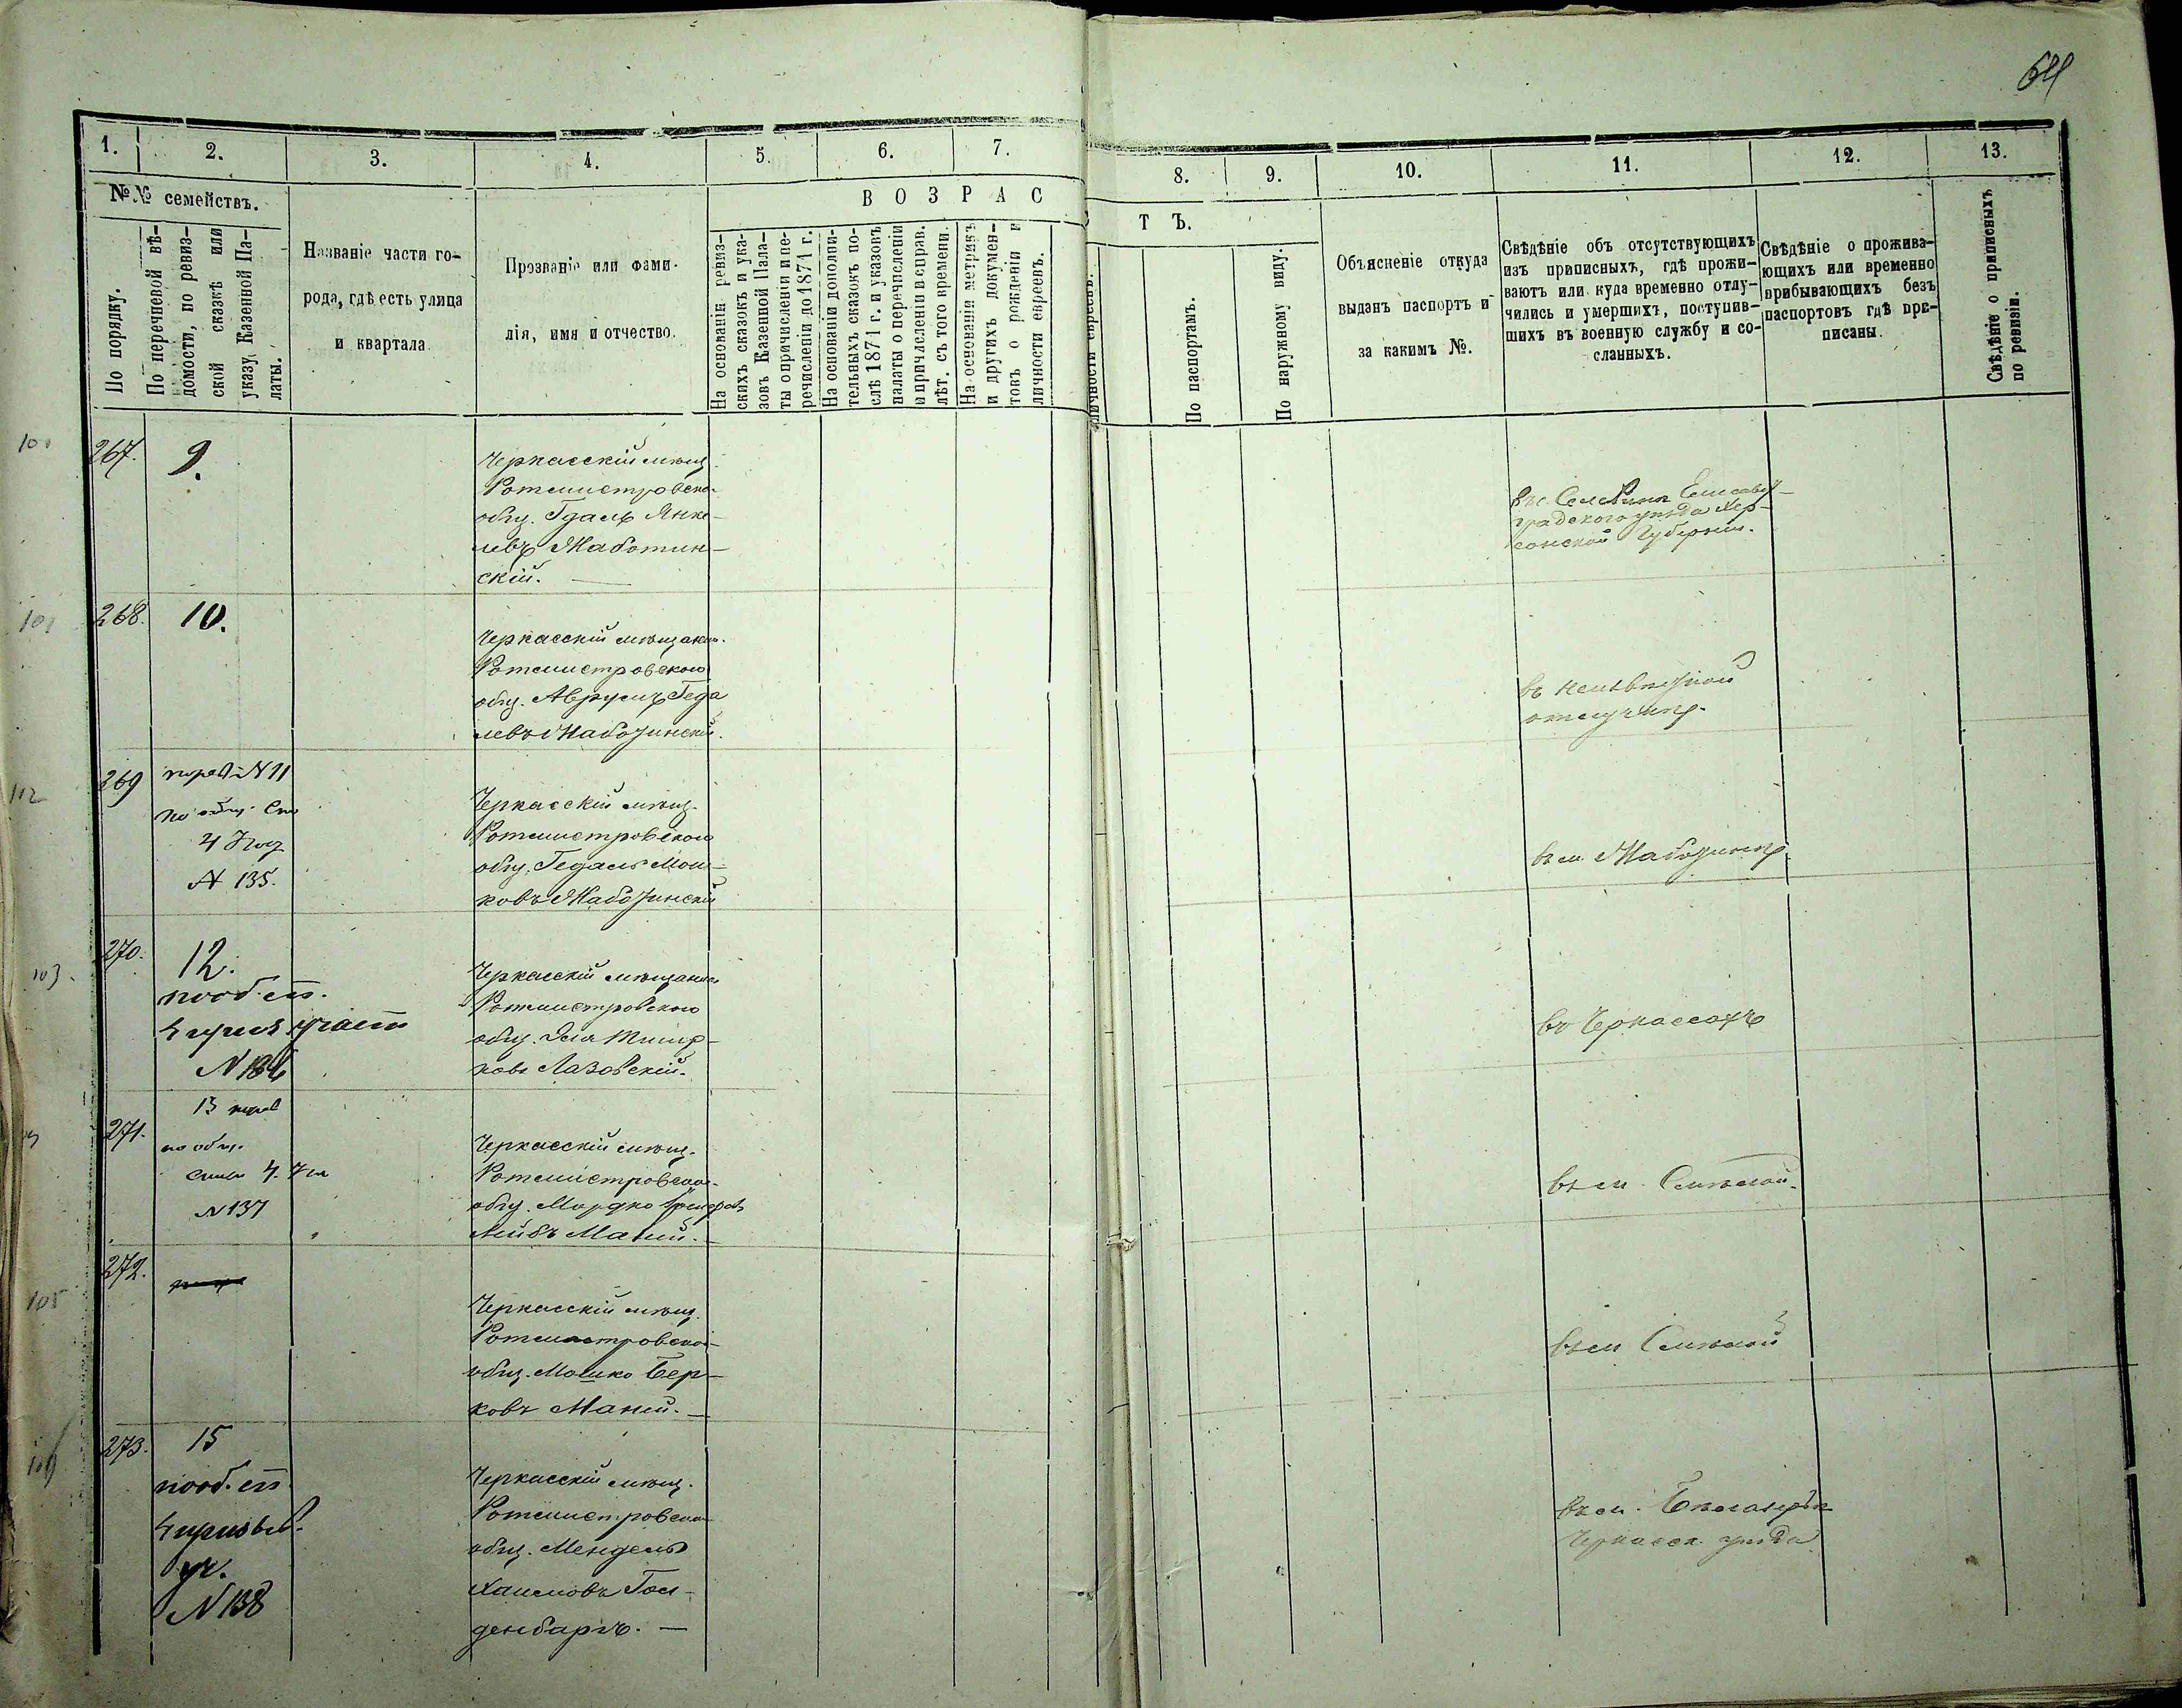 64
1. 2. 3. 4. 5. 6. 7. 8. 9. 10. 11. 12. 13.
№№ семействъ.
По порядку.
По перечневой вѣ-
домости, по ревиз-
ской сказкѣ или
указу Казенной Па-
латы.
Названіе части го-
рода, гдѣ есть улица
и квартала
Прозваніе или фами-
лія, имя и отчество.
ВОЗРАС
На основаніи ревиз-
скихъ сказокъ и ука-
зовъ Казенной Пала-
ты о причисленіи и пе-
речисленіи до 1871 г.
На основаніи дополни-
тельныхъ сказокъ по-
слѣ 1871 г. и указовъ
палаты о перечисленіи
и причисленіи и справ.
лѣт. съ того времени.
На основаніи метрикъ
и другихъ докумен-
товъ о рожденіи и
личности евреевъ.
ТЪ.
личности евреевъ.
По паспортамъ.
По наружному виду.
Объясненіе откуда
выданъ паспортъ и
за какимъ №.
Свѣдѣніе объ отсутствующихъ
изъ приписныхъ, гдѣ прожи-
ваютъ или куда временно отлу-
чились и умершихъ, поступив-
шихъ въ военную службу и со-
сланныхъ.
Свѣдѣніе о прожива-
ющихъ или временно
прибывающихъ безъ
паспортовъ гдѣ при-
писаны.
Свѣдѣніе о приписныхъ
по ревизіи.
267.
9.
Черкасскій мѣщ.
Ротмистровско-
общ. Гдаль Янке-
левъ Жаботин-
скій.
Елисавет-
градского уѣзда Хер-
сонской Губерніи.
101
268.
10.
Черкасскій мѣщанинъ
Ротмистровского
общ. Аврумъ Геда
левъ Жаботинскій.
въ неизвѣстной
отлучкѣ.
112
269
N 11
по общ.
N 135.
Черкасскій мѣщ.
Ротмистровского
общ. Гедаль Мош-
ковъ Жаботинскій
въ м. Жаботинѣ
103.
270.
12.
пооб. сп.
N 136
Черкасскій мѣщанинъ
Ротмистровского
общ.
ковъ Лазовскій.
въ Черкассахъ
271.
13
по общ.
N 137
Черкасскій мѣщ.
Ротмистровско-
общ. Мордко
Лейбъ Маній.
въ м. Смѣлой.
105
272.
Черкасскій мѣщ.
Ротмистровской
общ. Мошко Бер-
ковъ Маній.
въ м Смѣлой
273.
15
пооб. сп
уч.
N 138
Черкасскій мѣщ.
Ротмистровско-
общ. Мендель
Хаимовъ Гол-
денбаргъ.
въ м.
Черкасск. уѣзда